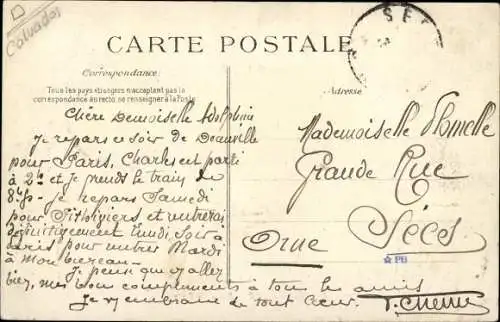 Calvados
SÉE
CARTE POSTALE
Correspondance
Tous les pays étrangers n'acceptant pas la
correspondance au recto, se renseigner à la Poste
Adresse
Chère Demoiselle Adolphine
Je repars ce soir de Deauville
pour Paris, Charles est parti
à 2h et je prends le train de
8h50 - Je repars Samedi
pour Pithiviers et rentrerai
définitivement Lundi soir à
Paris pour rentrer Mardi
à mon bureau -
Je pense que vs allez
bien, mes bons compliments à tous les amis
Je vs embrasse de tout cœur.
Mademoiselle
Grande Rue
Séees
Orne
PB